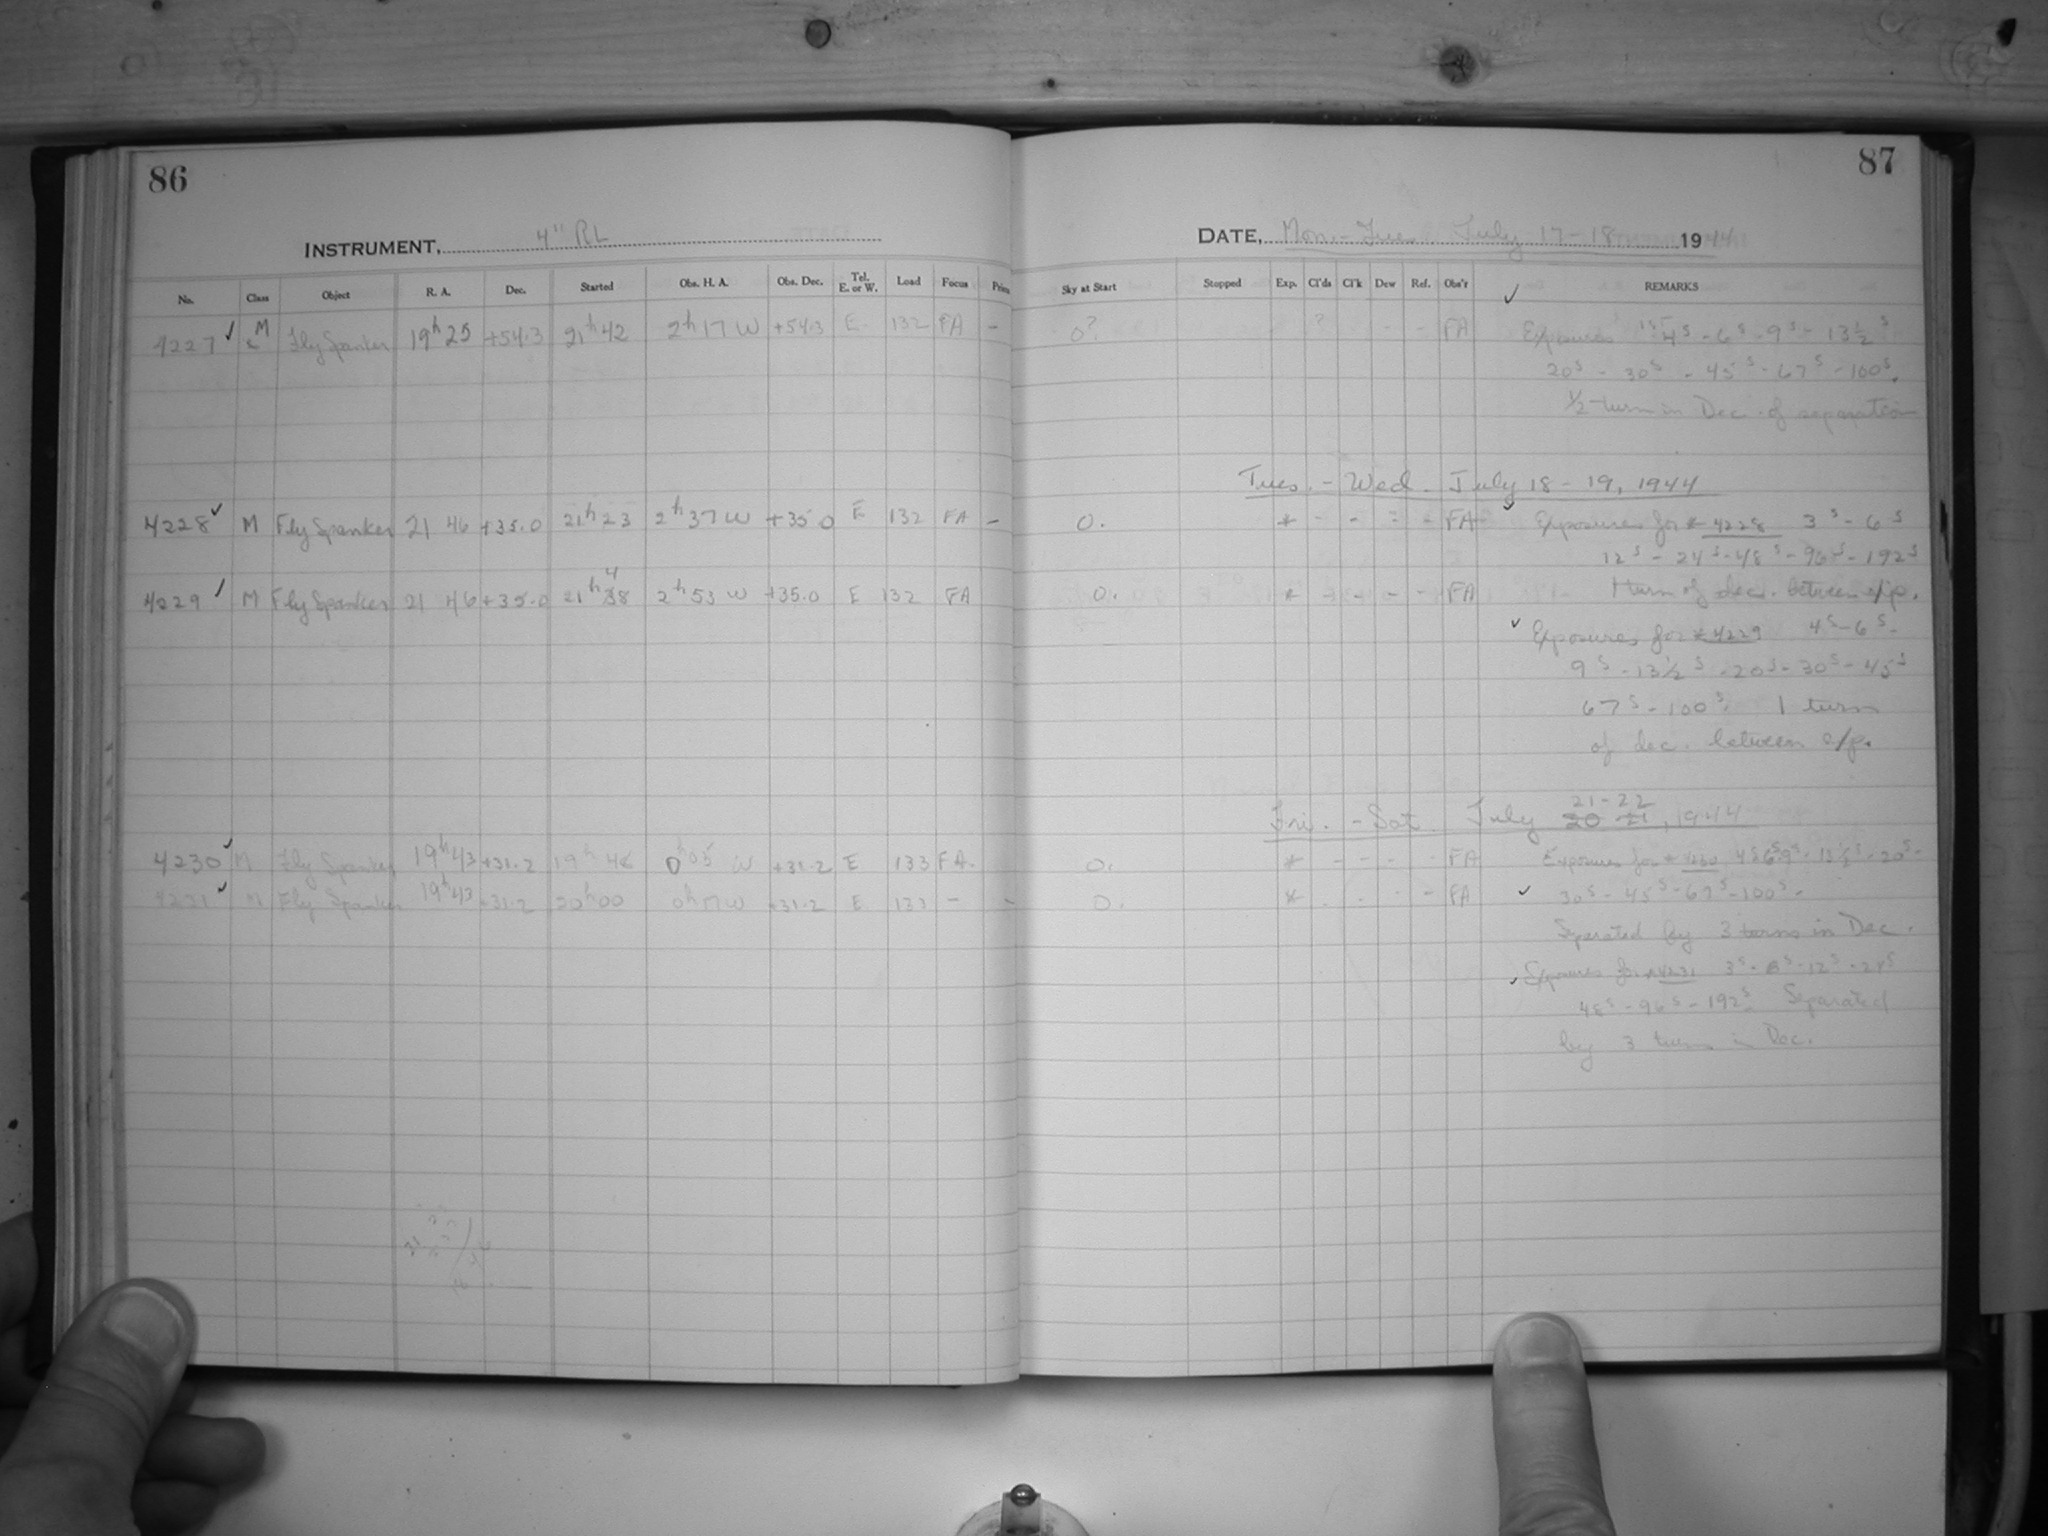 86
87
INSTRUMENT, 4" RL
DATE, Mon. - Tue. July 17-18 1944
No. Class Object R. A. Dec. Started Obs. H. A. Obs. Dec. Tel. E. or W. Load Focus Prism Sky at Start Stopped Exp. Cl'ds Cl'k Dew Ref. Obs'r REMARKS
4227 ✓ M Fly Spanker 19h 25 +54.3 21h 42 2h 17 W +54.3 E 132 FA - 0? ? - - FA Exposures 4s - 6s - 9s - 13½s
20s - 30s - 45s - 67s - 100s.
½ turn in Dec. of separation
Tues. - Wed. July 18 - 19, 1944
4228 ✓ M Fly Spanker 21 46 +35.0 21h 23 2h 37 W +35 0 E 132 FA - 0. * - - - - FA ✓ Exposures for * 4228 3s - 6s
12s - 24s - 48s - 96s - 192s
4229 ✓ M Fly Spanker 21 46 +35.0 21h 38 4 2h 53 W +35.0 E 132 FA 0. * - - - - FA 1 turn of dec. between e/p.
✓ Exposures for * 4229 4s - 6s -
9s - 13½s - 20s - 30s - 45s
67s - 100s. 1 turn
of dec. between e/p.
21 - 22
Fri. - Sat. July 20 21, 1944
4230 ✓ M Fly Spanker 19h 43 +31.2 19h 0h 05 W +31.2 E 133 FA 0. * - - - - FA Exposures for * 4230 4s 6s 9s - 13½s - 20s -
4231 ✓ M Fly Spanker 19h 43 +31.2 20h 00 0h 17 W +31.2 E 133 - - 0. * - - - - FA ✓ 30s - 45s - 67s - 100s -
Separated by 3 turns in Dec.
✓ Exposures for * 4231 3s - 6s - 12s - 24s
48s - 96s - 192s Separated
by 3 turns in Dec.